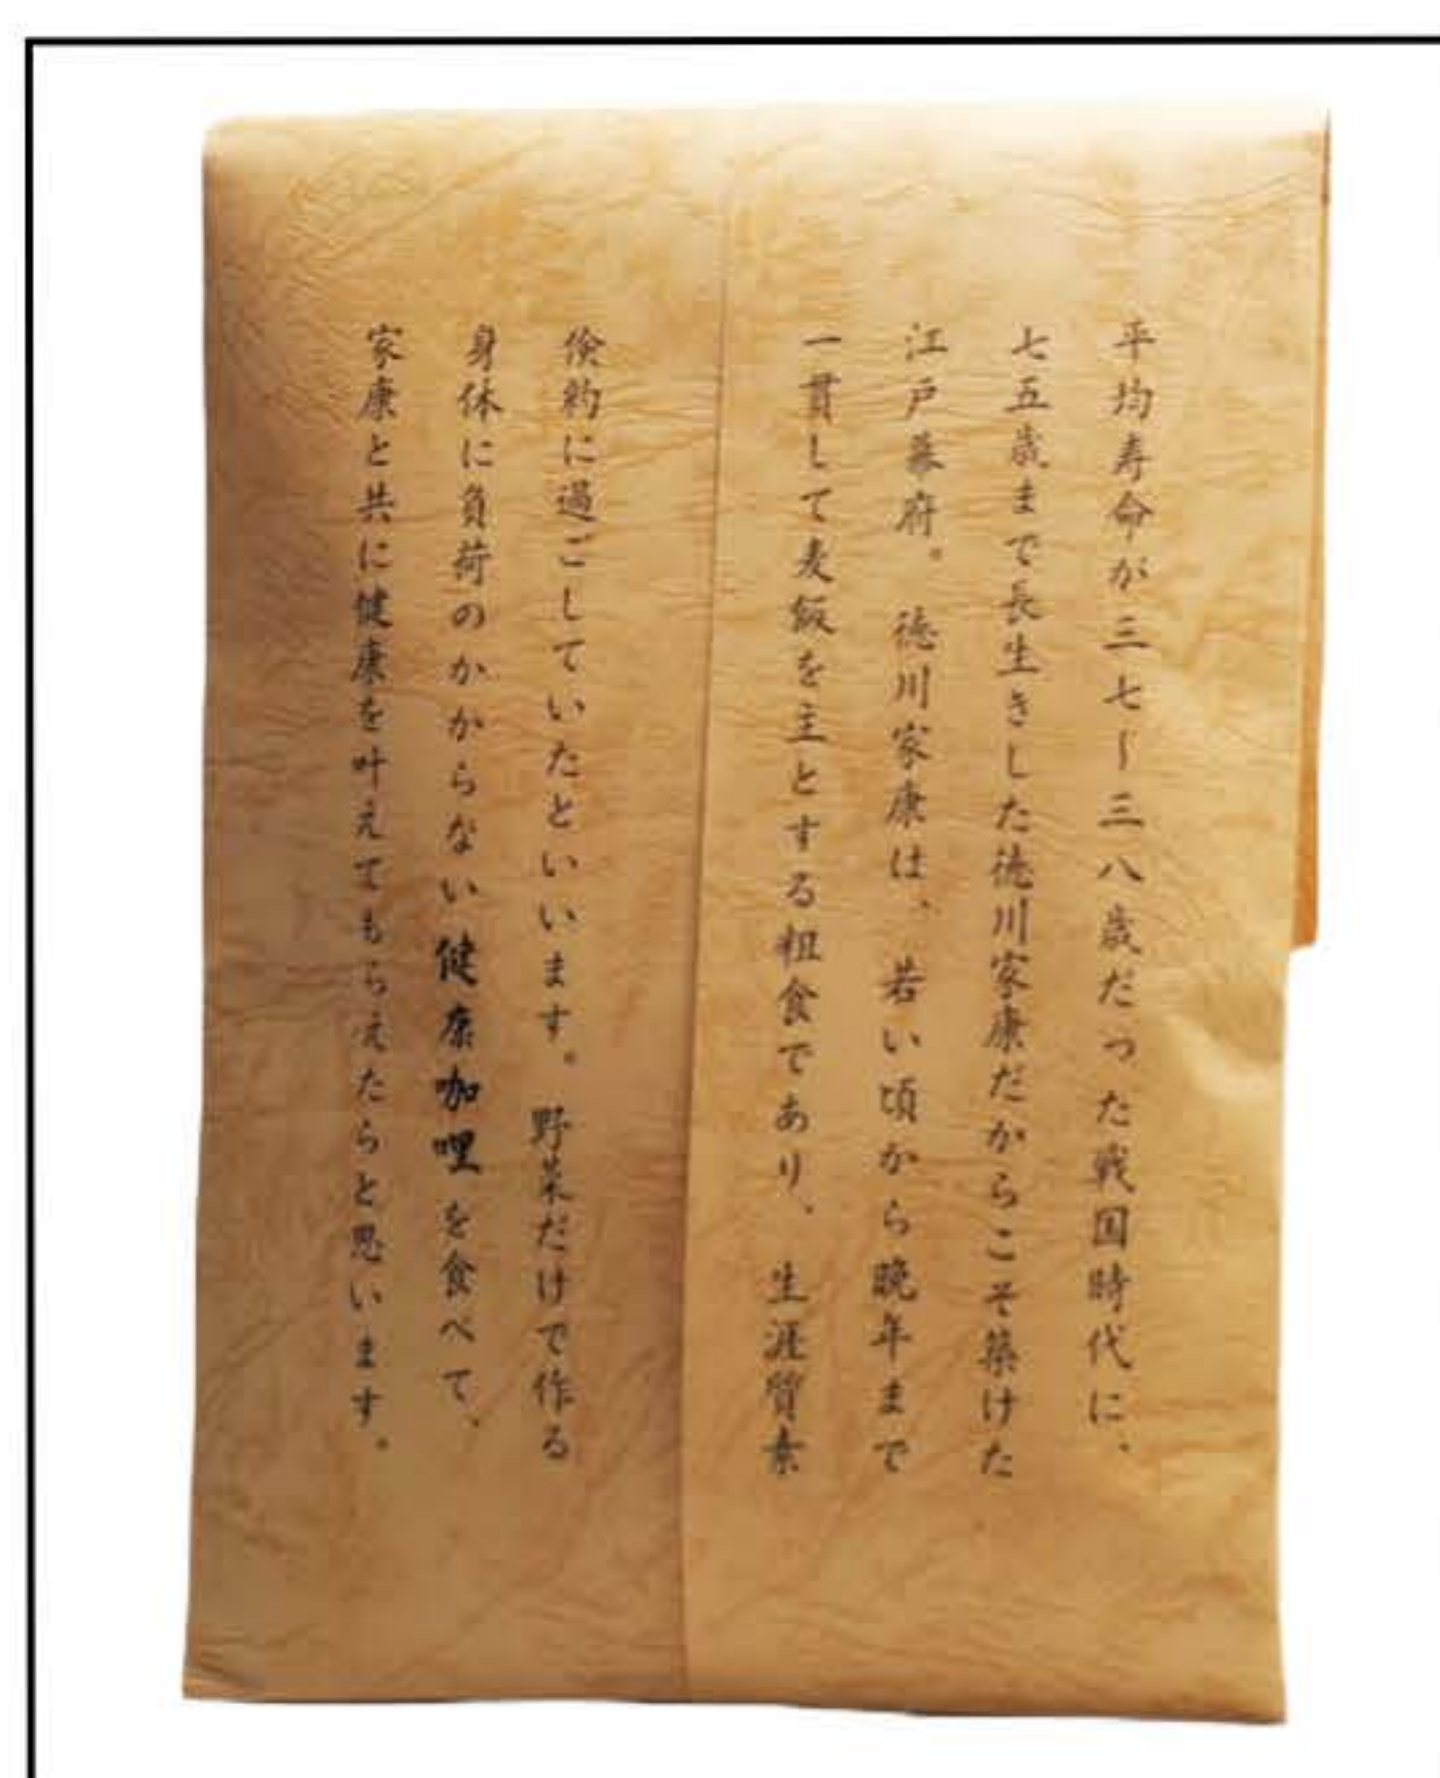 平均寿命が三七〜三八歳だった戦国時代に、
七五歳まで長生きした徳川家康だからこそ築けた
江戸幕府。徳川家康は、若い頃から晩年まで
一貫して麦飯を主とする粗食であり、生涯質素
倹約に過ごしていたといいます。野菜だけで作る
身体に負荷のかからない健康咖喱を食べて、
家康と共に健康を叶えてもらえたらと思います。